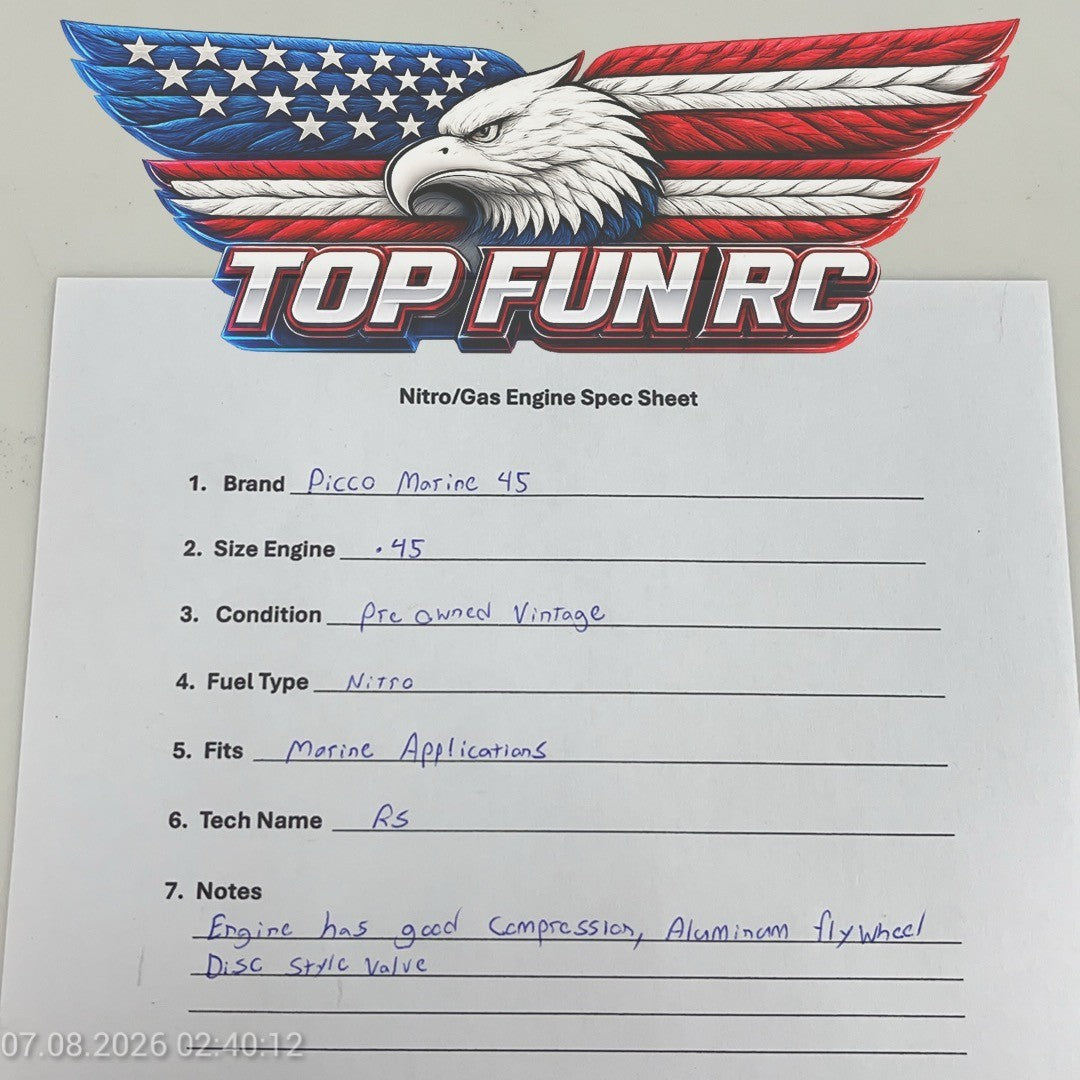 TOP FUN RC
Nitro/Gas Engine Spec Sheet
1. Brand Picco Marine 45
2. Size Engine .45
3. Condition Pre owned Vintage
4. Fuel Type Nitro
5. Fits Marine Applications
6. Tech Name RS
7. Notes
Engine has good Compression, Aluminum flywheel
Disc Style Valve
07.08.2026 02:40:12